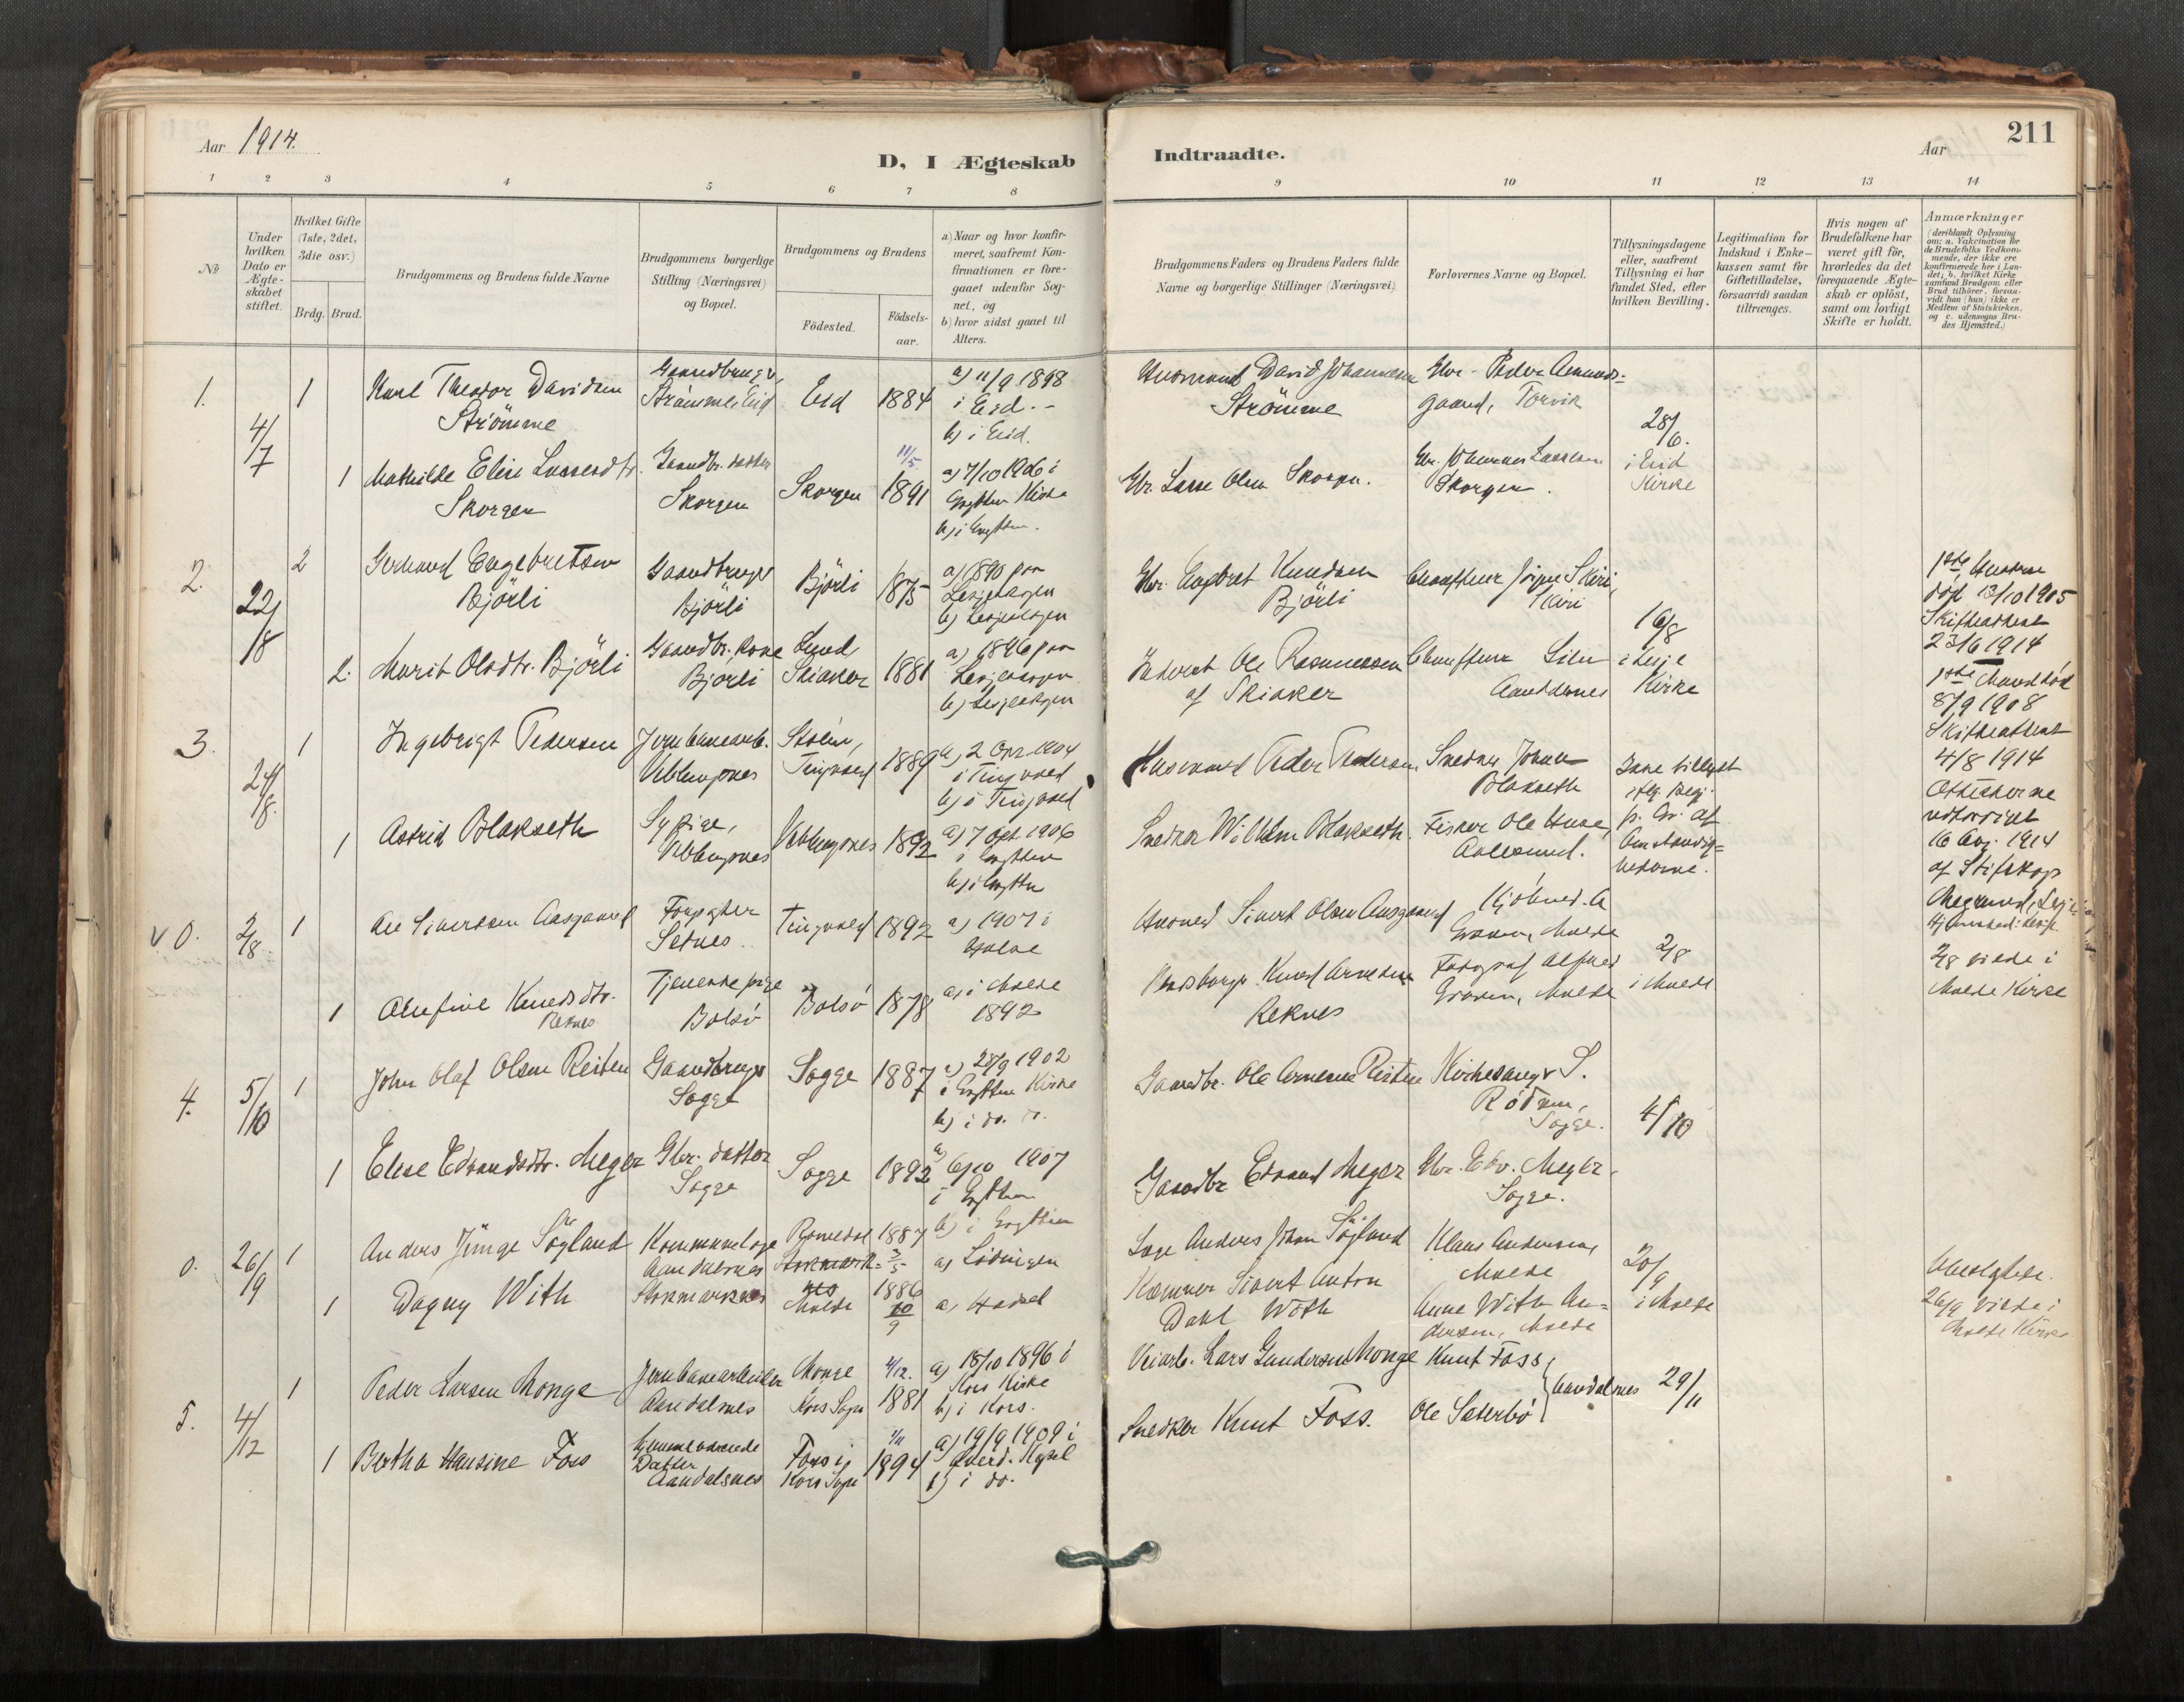 Aar 1914.
D, I Ægteskab
Indtraadte.
Aar
211
1 2 3 4 5 6 7 8
9 10 11 12 13 14
No
Under hvilken Dato er Ægteskabet stiftet.
Hvilket Gifte (1ste, 2det, 3die osv.)
Brdg. Brud.
Brudgommens og Brudens fulde Navne
Brudgommens borgerlige Stilling (Næringsvei) og Bopæl.
Brudgommens og Brudens
Födested.
Födsels-aar.
a) Naar og hvor konfir-
meret, saafremt Kon-
firmationen er fore-
gaaet udenfor Sog-
net, og
b) hvor sidst gaaet til
Alters.
Brudgommens Faders og Brudens Faders fulde
Navne og borgerlige Stillinger (Næringsvei)
Forlovernes Navne og Bopæl.
Tillysningsdagene
eller, saafremt
Tillysning ei har
fundet Sted, efter
hvilken Bevilling.
Legitimation for
Indskud i Enke-
kassen samt for
Giftetilladelse,
forsaavidt saadan
tiltrænges.
Hvis nogen af
Brudefolkene har
været gift för,
hvorledes da det
foregaaende Ægte-
skab er oplöst,
samt om lovligt
Skifte er holdt.
Anmærkninger
(deriblandt Oplysning
om: a. Vakcination for
de Brudefolks Vedkom-
mende, der ikke ere
konfirmerede her i Lan-
det; b. hvilket Kirke
samfund Brudgom eller
Brud tilhörer, forsaa-
vidt han (hun) ikke er
Medlem af Statskirken,
og c. udensogns Bru-
des Hjemsted.)
1. 4/7 1 Karl Theodor Davidsen
Strömme
Gaardbruger,
Strömme, Eid
Eid 1884
a) 11/9 1898
i Eid.
b) i Eid.
Husmand David Johannesen
Strömme
Gbr. Peder Amunds-
gaard, Torvik
28/6.
i Eid
Kirke
1 Mathilde Elise Larsesdtr.
Skorgen
Gaardbr. datter
Skorgen
Skorgen 11/5 1891
a) 7/10 1906 i
Grytten Kirke
b) i Grytten.
Gbr. Lasse Olsen Skorgen.
Gbr. Johannes Larsson
Skorgen.
2. 22/8 2 Gerhard Engebretsen
Björli
Gaardbruger
Björli
Björli 1875
a) 1890 paa
Lesjeskogen
b) Lesjeskogen
Gbr. Engebret Knudsen
Björli
Chauffeur Jörgen Skiri,
Skiri
16/8
i Lesje
Kirke
1ste Hustru
död 13/10 1905
Skifteattest
23/6 1914
2. Marit Olsdtr. Björli
Gaardbr. kone
Björli
Lund
Skiaker 1881
a) 1896 paa
Lesjeskogen
b) Lesjeskogen
Inderst Ole Rasmussen
af Skiaker
Chauffeur
Aandalsnes
1ste Mand död
8/9 1908
Skifteattest
4/8 1914
Attesterne
udfærdiget
16 Aug. 1914
3. 24/8. 1 Ingebrigt Pedersen
Jernbanearb.
Veblungsnes
Tingvoed 1889
a) 2 Apr 1904
i Tingvoed
b) i Tingvoed
Husmand Peder Pedersen
Snedker Johan
Blakseth
1 Astrid Blakseth
Sypige,
Veblungsnes
Veblungsnes 1892
a) 7 Okt 1906
i Grytten
b) i Grytten
Snedker Wilhelm Blakseth.
Fisker Ole Huse,
Aalesund.
v 0. 2/8 1 Ole Sivertsen Aasgaard
Forpagter
Setnes
Tingvoed 1892
a) 1907 i
Husmd Sivert Olsen Aasgaard
Kjöbmd. A
Graven, Molde
2/8
i Molde
2/8 viede i
Molde Kirke
1 Olufine Knudsdtr.
Reknes
Tjenestepige
Bolsö
Bolsö 1878
a) i Molde
1892
Knud Arnesen
Reknes
Fotograf Alfred
Graven, Molde
4. 5/10 1 John Olaf Olsen Reiten
Gaardbruger
Sogge
Sogge 1887
a) 28/9 1902
i Grytten Kirke
b) i do.
Gaardbr. Ole Arnesen Reiten
Kirkesanger S.
Rödven,
Sogge.
4/10
1 Elise Edvardsdtr. Meger
Gbr. datter
Sogge
Sogge 1892
a) 6/10 1907
i Grytten
b) i Grytten
Gaardbr Edvard Meger
Gbr. Edv. Meger
Sogge.
0. 26/9 1 Anders Jünge Sögland
Kommunelæge
Aandalsnes
Romedal 1887
3/5
a) Lödingen
Læge Anders Johan Sögland
Klaus Andersen,
Molde
20/9
i Molde
26/9 viede i
Molde Kirke
1 Dagny With
Stokmarknes
Molde 1886
10/9
a) Hadsel
Kæmner Sivert Anton
Dahl With
Anna With An-
dersen, Molde
5. 4/12 1 Peder Larsen Monge
Jernbanearbeider
Aandalsnes
Monge
Kors Sogn 4/12. 1881
a) 18/10 1896 i
Kors Kirke
b) i Kors.
Veiarb. Lars Gundersen Monge
Knut Foss
Aandalsnes
29/11
1 Bertha Hansine Foss
Hjemmeværende
Datter
Aandalsnes
Foss i
Kors Sogn 1894
a) 19/9 1909 i
Øverd. Kapel
b) i do.
Snedker Knut Foss.
Ole Sæterbö